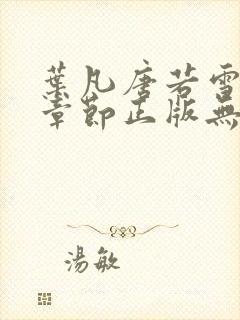 葉凡唐若雪
章節正版無
湯敏